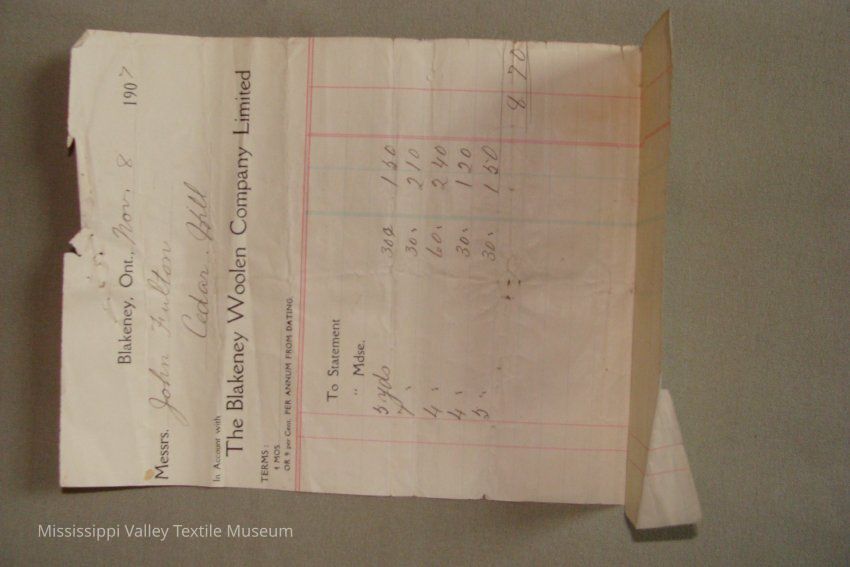 Blakeney, Ont., Nov. 8 1907
Messrs. John Fulton
Cedar Hill
In Account with
The Blakeney Woolen Company Limited
TERMS:
4 MOS.
OR 9 per Cent. PER ANNUM FROM DATING.
To Statement
" Mdse.
5 yds 30¢ 1 50
7 " 30 " 2 10
4 " 60 " 2 40
4 " 30 " 1 20
5 " 30 " 1 50
8 70
Mississippi Valley Textile Museum